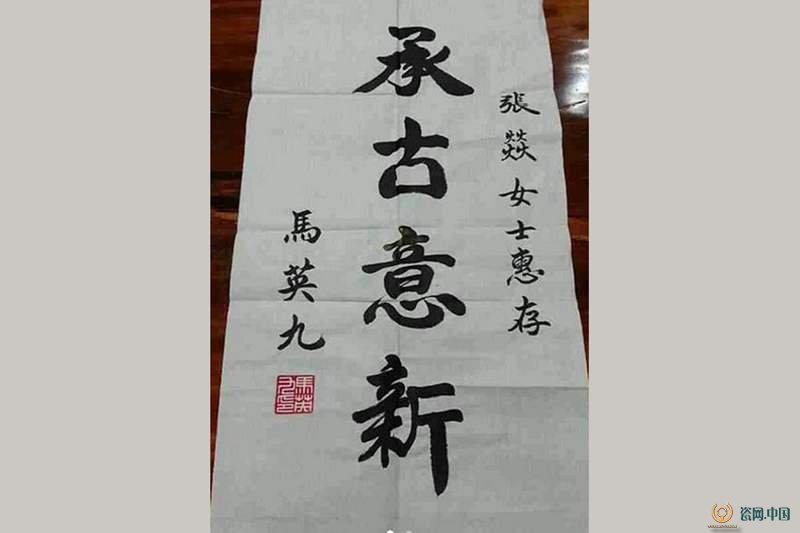 張燚女士惠存
承古意新
馬英九
馬英九印
瓷网.中国